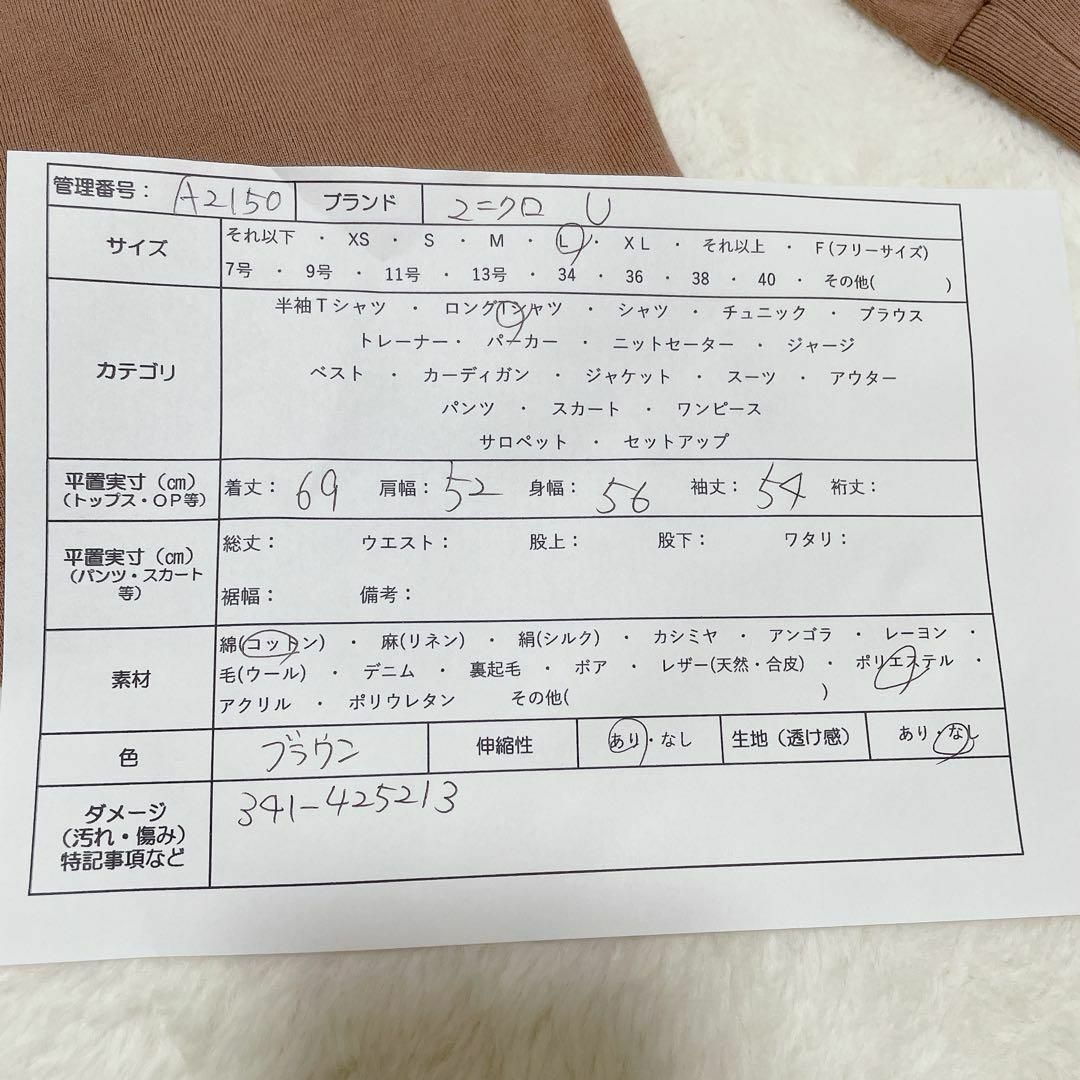 管理番号： A2150 ブランド ユニクロ U
サイズ
それ以下 ・ XS ・ S ・ M ・ L ・ XL ・ それ以上 ・ F(フリーサイズ)
7号 ・ 9号 ・ 11号 ・ 13号 ・ 34 ・ 36 ・ 38 ・ 40 ・ その他( )
カテゴリ
半袖Tシャツ ・ ロングTシャツ ・ シャツ ・ チュニック ・ ブラウス
トレーナー・ パーカー ・ ニットセーター ・ ジャージ
ベスト ・ カーディガン ・ ジャケット ・ スーツ ・ アウター
パンツ ・ スカート ・ ワンピース
サロペット ・ セットアップ
平置実寸（㎝）
（トップス・OP等）
着丈： 69 肩幅： 52 身幅： 56 袖丈： 54 裄丈：
平置実寸（㎝）
（パンツ・スカート
等）
総丈： ウエスト： 股上： 股下： ワタリ：
裾幅： 備考：
素材
綿(コットン) ・ 麻(リネン) ・ 絹(シルク) ・ カシミヤ ・ アンゴラ ・ レーヨン ・
毛(ウール) ・ デニム ・ 裏起毛 ・ ボア ・ レザー(天然・合皮) ・ ポリエステル ・
アクリル ・ ポリウレタン その他( )
色 ブラウン 伸縮性 あり・なし 生地（透け感） あり・なし
ダメージ
（汚れ・傷み）
特記事項など
341-425213